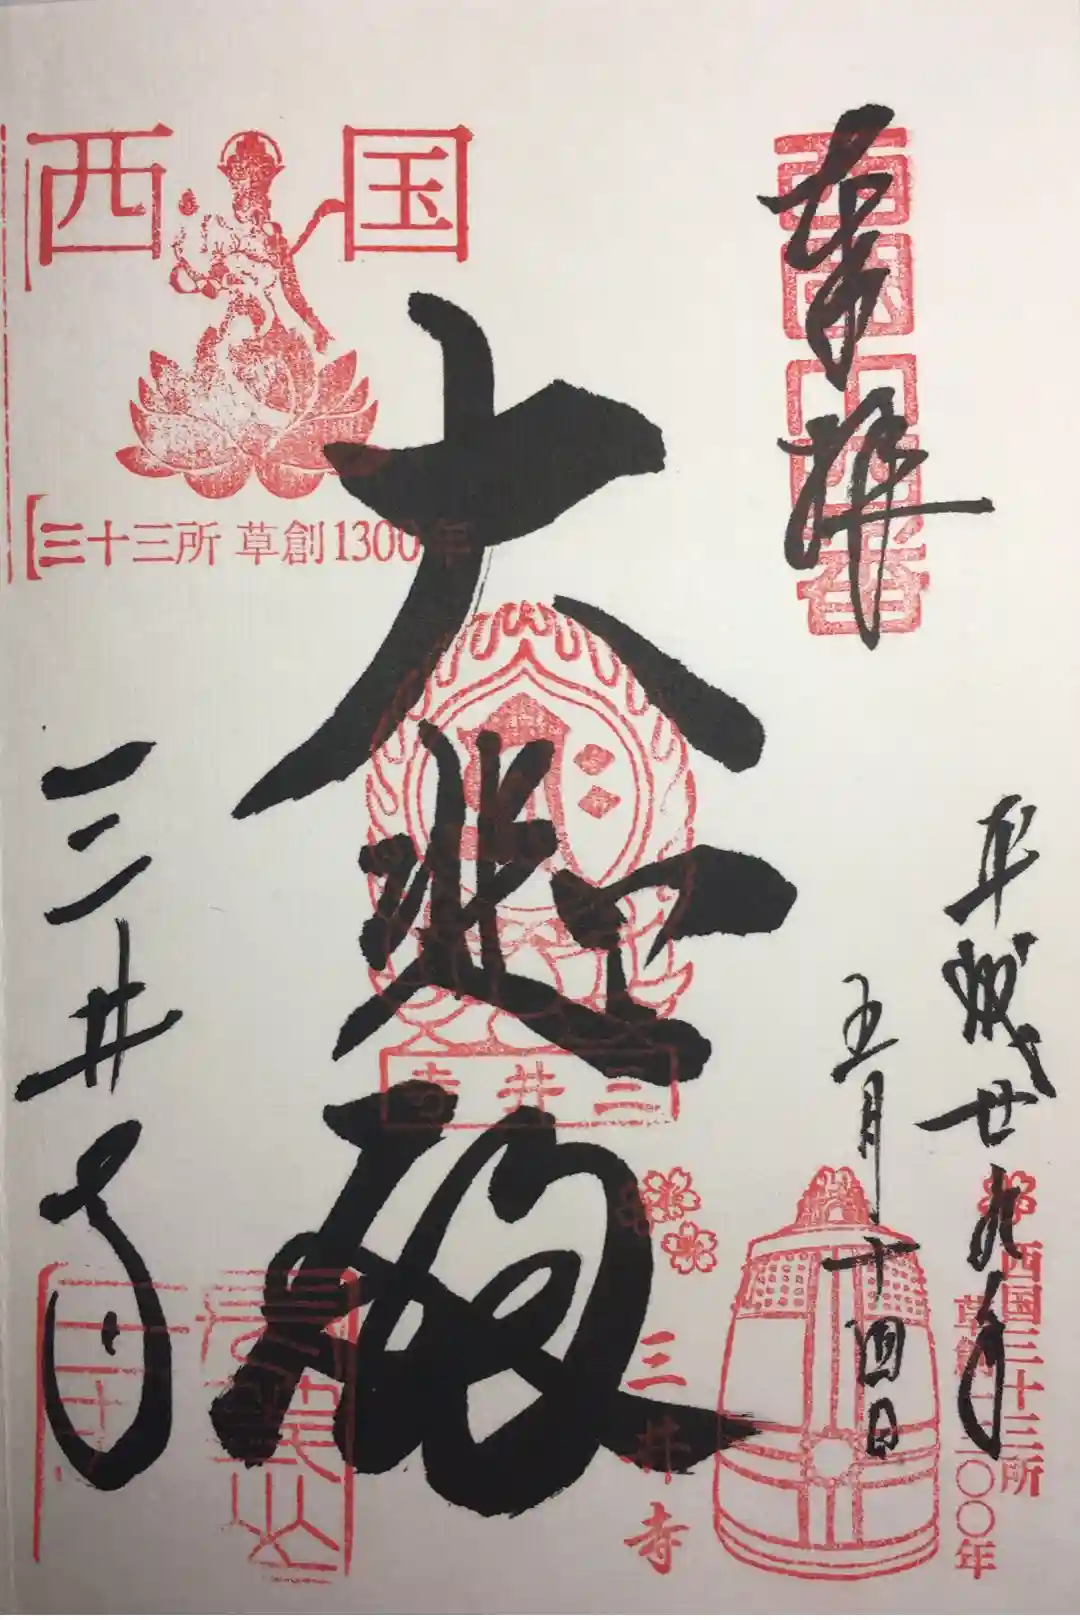 奉拝
西国十四番
平成廿九年
五月十四日
大悲殿
三井寺
西国
三十三所 草創1300年
三井寺
三井寺
西国三十三所
草創一三〇〇年